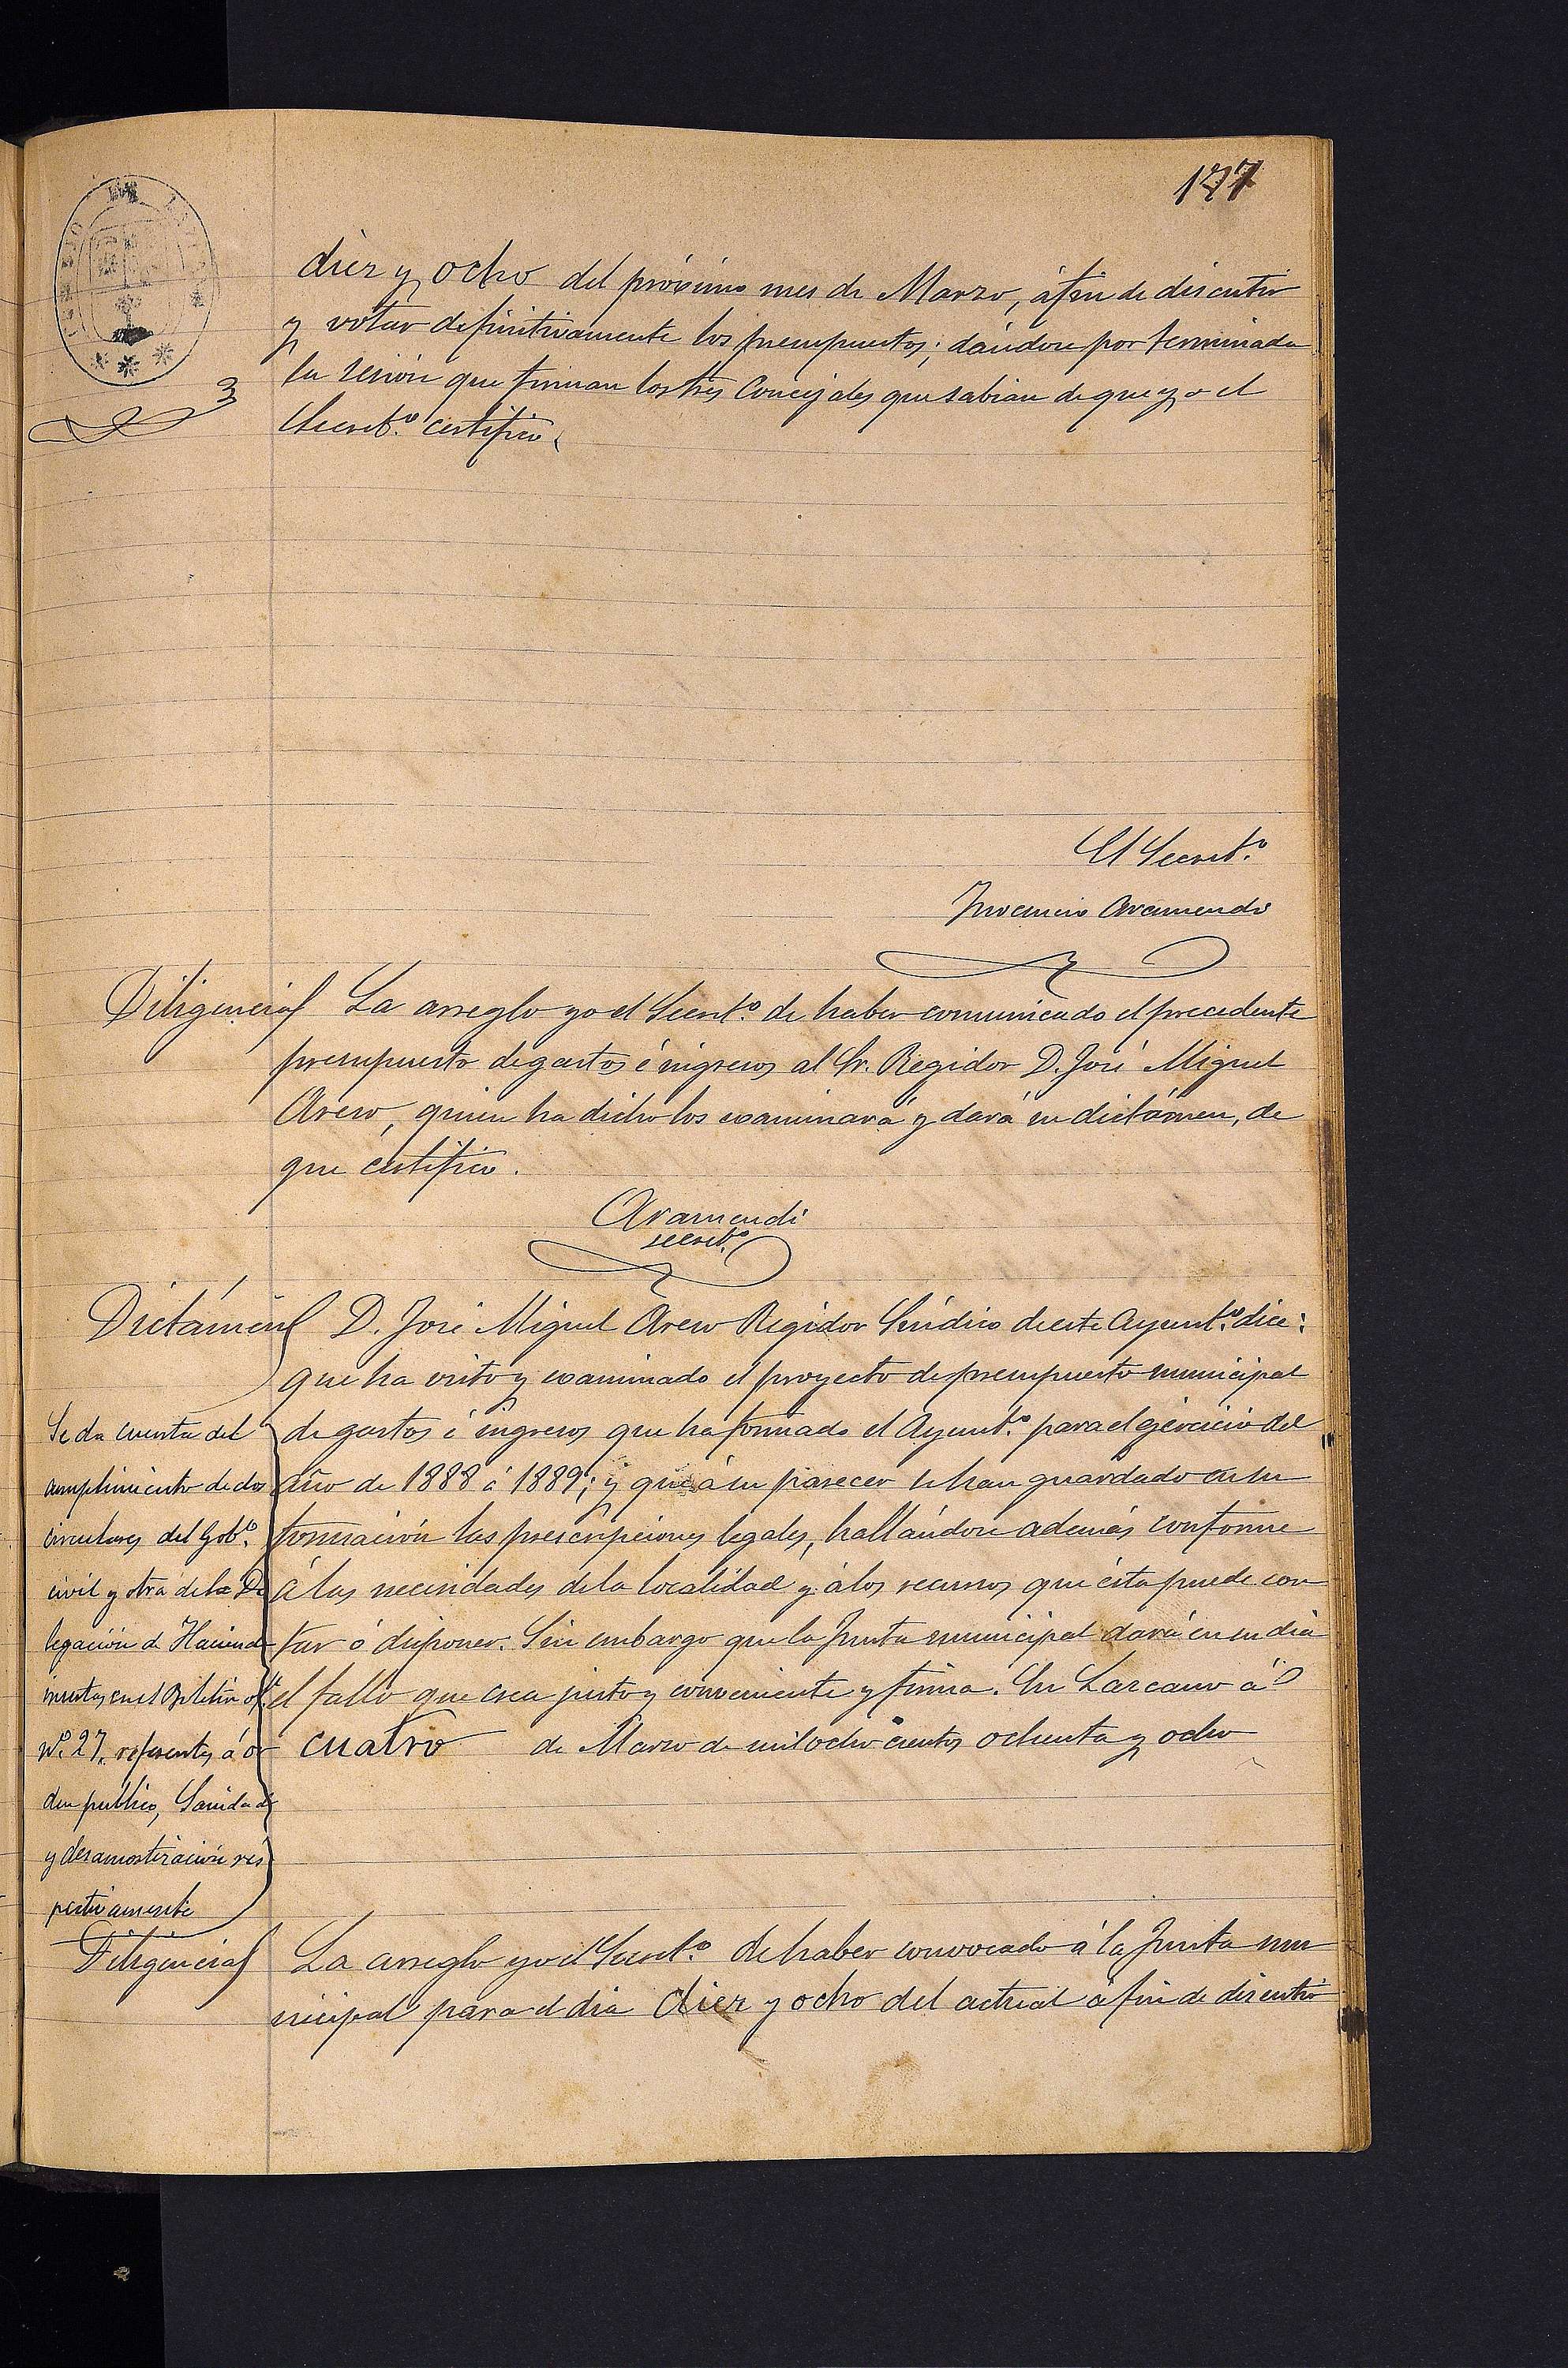 177
diez y ocho del próximo mes de Marzo, á fin de discutir
y votar definitivamente los presupuestos; dándose por terminada
la sesión que firman los tres Concejales que sabian de que yo el
Secret.º certifico
El Secret.º
Inocencio Aramendi
Diligencia La arreglo yo el Secret.º de haber comunicado el precedente
presupuesto de gastos é ingresos al Sr. Regidor D. José Miguel
Areso, quien ha dicho los examinará y dará su dictámen, de
que certifico.
Aramendi
secret.º
Dictámen D. José Miguel Areso Regidor Síndico de este Ayunt.º dice:
que ha visto y examinado el proyecto de presupuesto municipal
de gastos é ingresos que ha formado el Ayunt.º para el ejercicio del
año de 1888 á 1889; y que á su parecer se han guardado en su
formación las prescripciones legales, hallándose además conforme
á las necesidades de la localidad y á los recursos que ésta puede con
tar ó disponer. Sin embargo que la Junta municipal dará en su dia
el fallo que crea justo y conveniente y firma. En Lazcano á
cuatro de Marzo de mil ochocientos ochenta y ocho
Se da cuenta del
cumplimiento de dos
circulares del Gob.º
civil y otra de la De
legación de Hacienda
insertas en el Boletin of.l
N.º 27, referentes á or
den publico, Sanidad
y desamortización res
pectivamente
Diligencia La arreglo yo el Secret.º de haber convocado á la Junta mu
nicipal para el dia diez y ocho del actual á fin de discutir